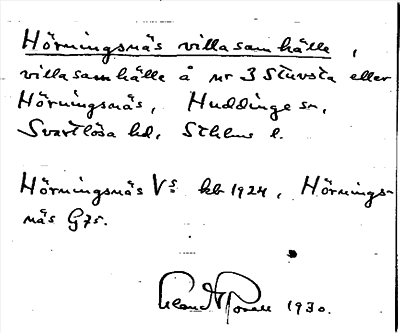 Hörningsnäs villasamhälle,
villasamhälle å nr 3 Stuvsta eller
Hörningsnäs, Huddinge sn,
Svartlösa hd, Sthlms l.
Hörningsnäs Vs. kb 1924, Hörnings-
näs G75.
1930.